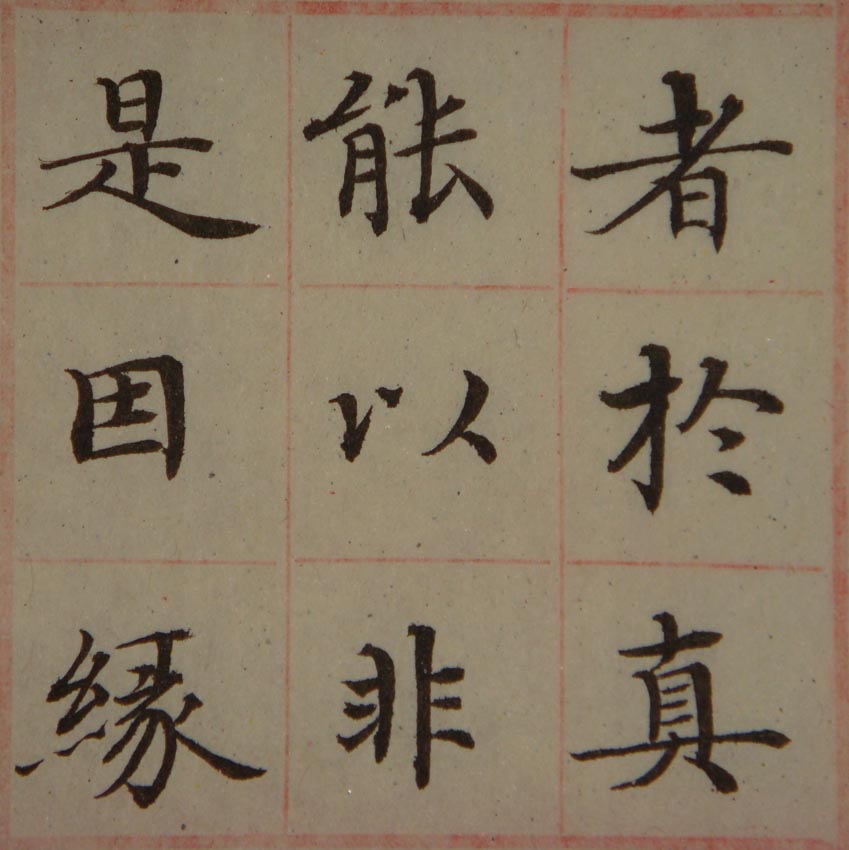 者於真
能以非
是因緣